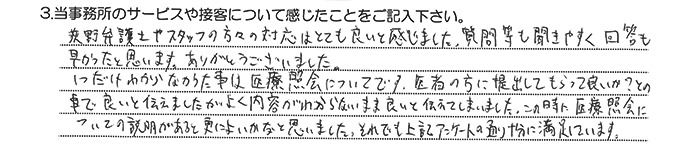 3.当事務所のサービスや接客について感じたことをご記入下さい。
弁護士やスタッフの方々の対応はとても良いと感じました。質問等も聞きやすく回答も
早かったと思います。ありがとうございました。
1つだけわからなかった事は医療照会についてです。医者の方に提出してもらって良いか?との
事で良いと伝えましたがよく内容がわからないまま良いと伝えてしまいました。この時に医療照会に
ついての説明があると更によいかなと思いました。それでも上記アンケートの通り十分に満足しています。